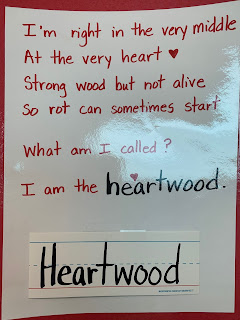 I'm right in the very middle
At the very heart ♥
Strong wood but not alive
So rot can sometimes start
What am I called?
I am the heartwood.
Heartwood